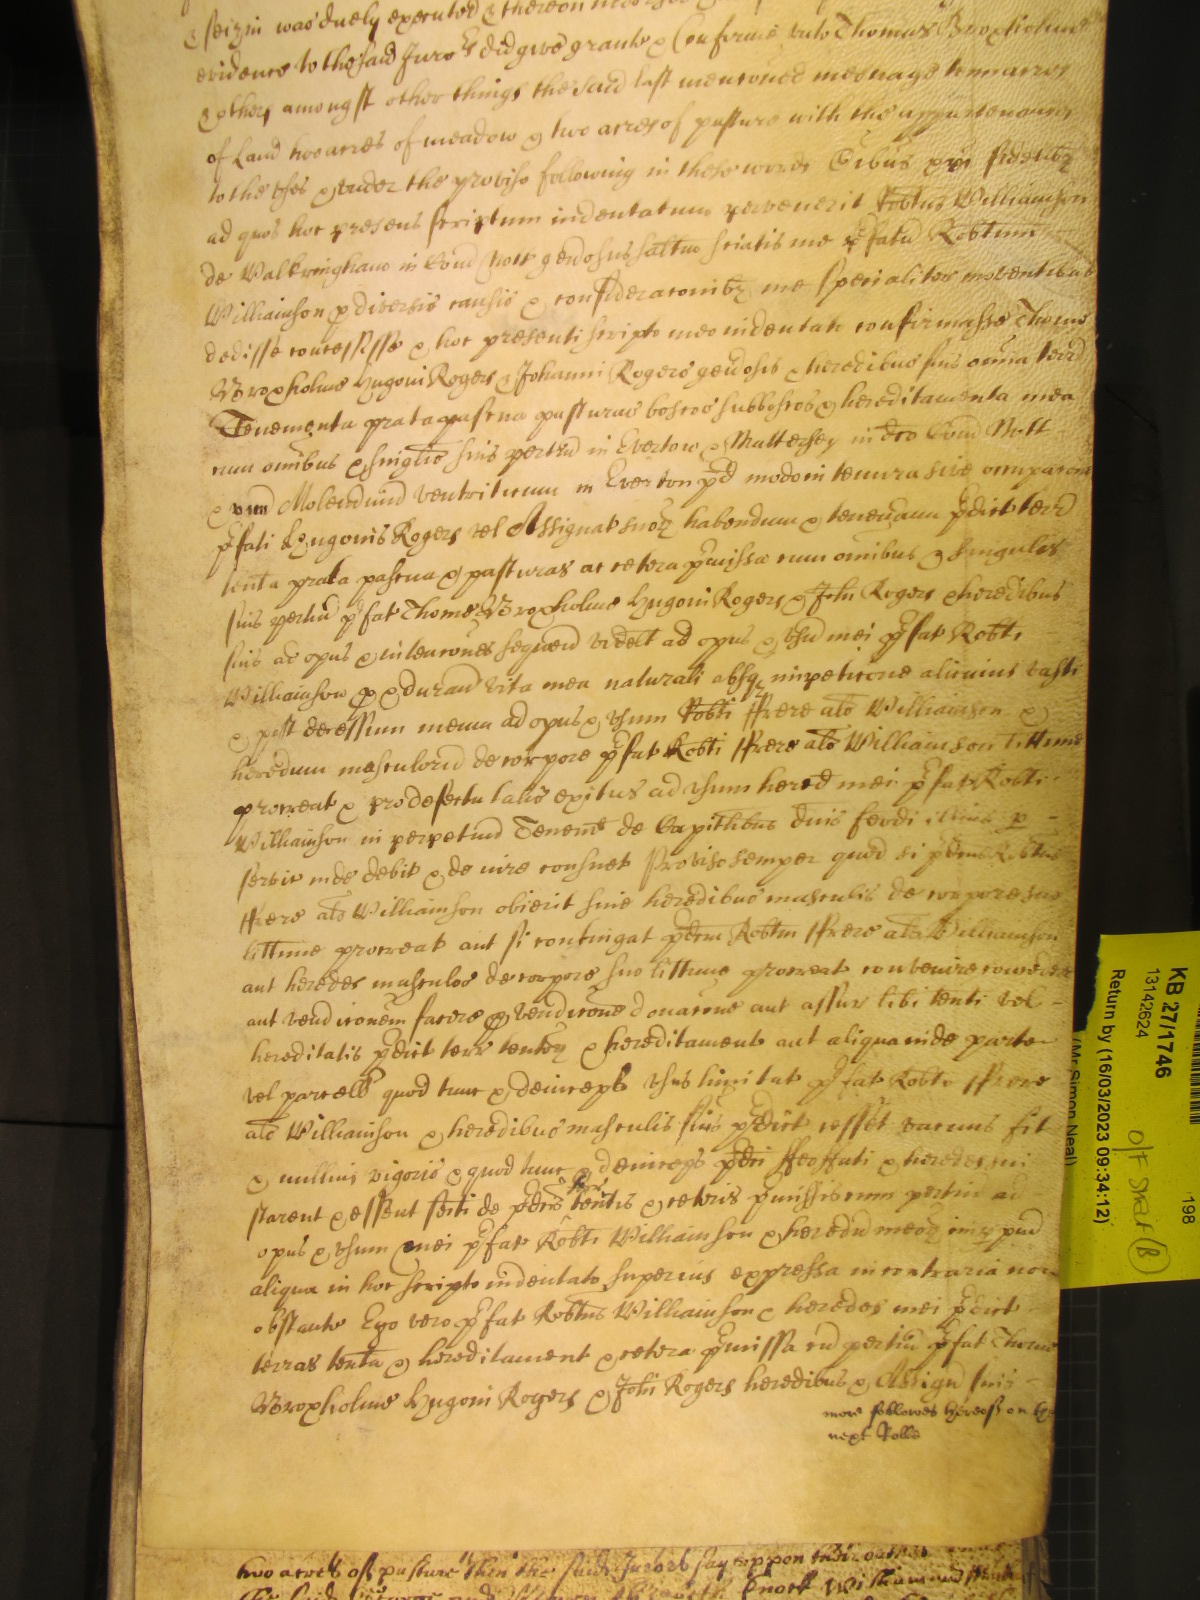 & seizin was duely executed & thereon
evidence to the said Juro:rs did give grante & Confirme unto Thomas Broxholme
& others amongst other things the said last mentioned messuage tenn acres
of Land two acres of meadow & two acres of pasture with the appurtenances
to the uses & under the proviso following in these words Oibus xpi fidelibz
ad quos hoc presens scriptum indentatum pervenerit Robtus Williamson
de Walkringham in Com Nott genosus saltm sciatis me p'fatu Robtum
Williamson p diversis causis & consideraconibz me specialiter moventibus
dedisse concessisse & hoc presenti scripto meo indentato confirmasse Thome
Broxholme Hugoni Rogers & Johanni Rogers genosis & heredibus suis omia terr
Tenementa prata pascua pasturas boscos subboscos & hereditamenta mea
cum omibus & singlis suis pertin in Everton & Mattersey in dco Com Nott
& unu Molendinu ventriticum in Everton p'd modo in tenura sive occupacone
p'fati Hugonis Rogers vel Assignat suoz habendum & tenendum p'dict terr
tenta prata pascua & pasturas ac cetera p'missa cum omibus & singulis
suis pertin p'fat Thome Broxholme Hugoni Rogers & Johi Rogers & heredibus
suis ad opus & intencones sequen videlt ad opus & usu mei p'fat Robti
Williamson p & duran vita mea naturali absqz impeticone alicuius vasti
& post decessum meum ad opus & usum Robti ffrere als Williamson &
heredum masculoru de corpore p'fat Robti ffrere als Williamson littime
procreat & pro defectu talis exitus ad usum hered mei p'fat Robti
Williamson in perpetuu Tenend de Capitlibus dnis feodi illius p
servic inde debit & de iure consuet Proviso semper quod si p'dcus Robtus
ffrere als Williamson obierit sine heredibus masculis de corpore suo
littime procreat aut si contingat p'dcm Robtm ffrere als Williamson
aut heredes masculos de corpore suo littime procreat convenire concedere
aut vendiconem facere p vendicone donacone aut assur libi tenti vel
hereditatis p'dict terr tentoz & hereditament aut aliqua inde parte
vel parcell quod tunc & deinceps usus limitat p'fat Robto ffrere
als Williamson & heredibus masculis suis p'dict cesset vacuus sit
& nullius vigoris & quod tunc & deinceps p'dci ffeoffati & heredes sui
starent & essent seiti de p'dcis terr' tentis & ceteris p'missis cum pertin ad
opus & usum mei p'fat Robti Williamson & heredu meoz imppm
aliqua in hoc scripto indentato superius expressa in contraria non
obstante Ego vero p'fat Robtus Williamson & heredes mei p'dict
terras tenta & hereditament & cetera p'missa cu pertin p'fat Thome
Broxholme Hugoni Rogers & Johi Rogers heredibus & Assign suis
more followes hereof on the
next Rolle
two acres of pasture then the said Jurors say uppon their oathes
KB 27/1746
13142624
Return by (16/03/2023 09:34:12)
(Mr Simon Neal)
198